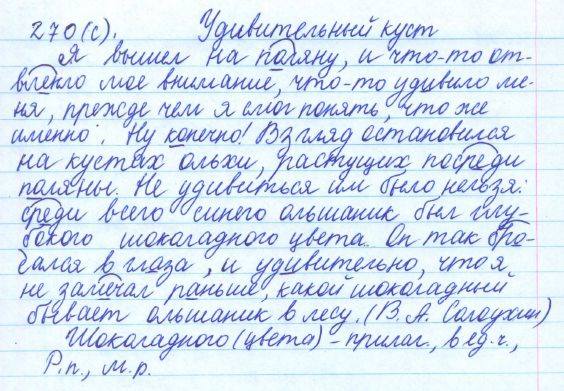 270(с). Удивительный куст
Я вышел на поляну, и что-то от-
влекло мое внимание, что-то удивило ме-
ня, прежде чем я смог понять, что же
именно. Ну конечно! Взгляд остановился
на кустах ольхи, растущих посреди
поляны. Не удивиться им было нельзя:
среди всего синего ольшаник был глу-
бокого шоколадного цвета. Он так бро-
сался в глаза, и удивительно, что я
не замечал раньше, какой шоколадный
бывает ольшаник в лесу. (В. А. Солоухин)
Шоколадного (цвета) - прилаг., в ед.ч.,
Р.п., м.р.